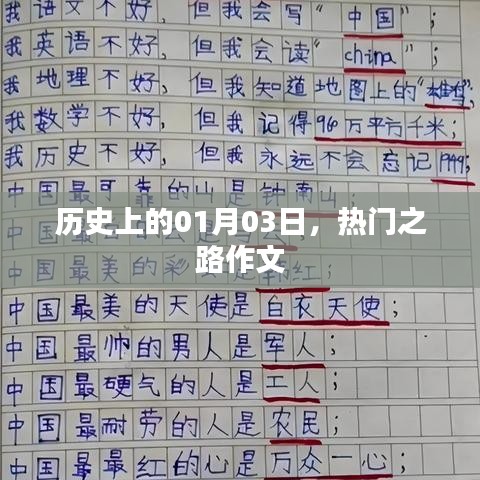 我语文不好，但我会写"中国"；
我英语不好，但我会读"china"；
我地理不好，但我知道地图上的"雄鸡"；
我数学不好，但我记得960万平方千米；
我历史不好，但我永远不会忘记1949；
中国最可靠的山是钟南山；
历史上的01月03日，热门之
路作文
中国最美的彩红；
中国最美的天使是白衣天使；
中国最帅的男人是军人；
中国最硬气的人是工人；
中国最耐劳的人是农民；
中国最最红的心是万众一心；